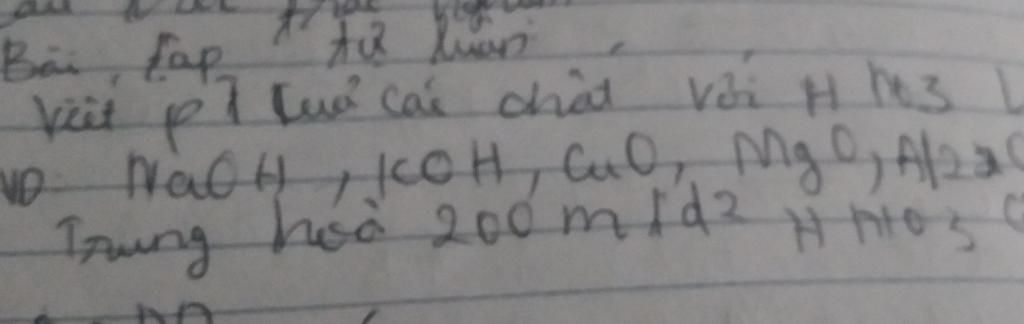 Bài tập tự luận
Viết pT của các chất với H NO3 L
VD NaOH, KOH, CuO, MgO, Al2
Trung hoà 200 ml d2 HNO3